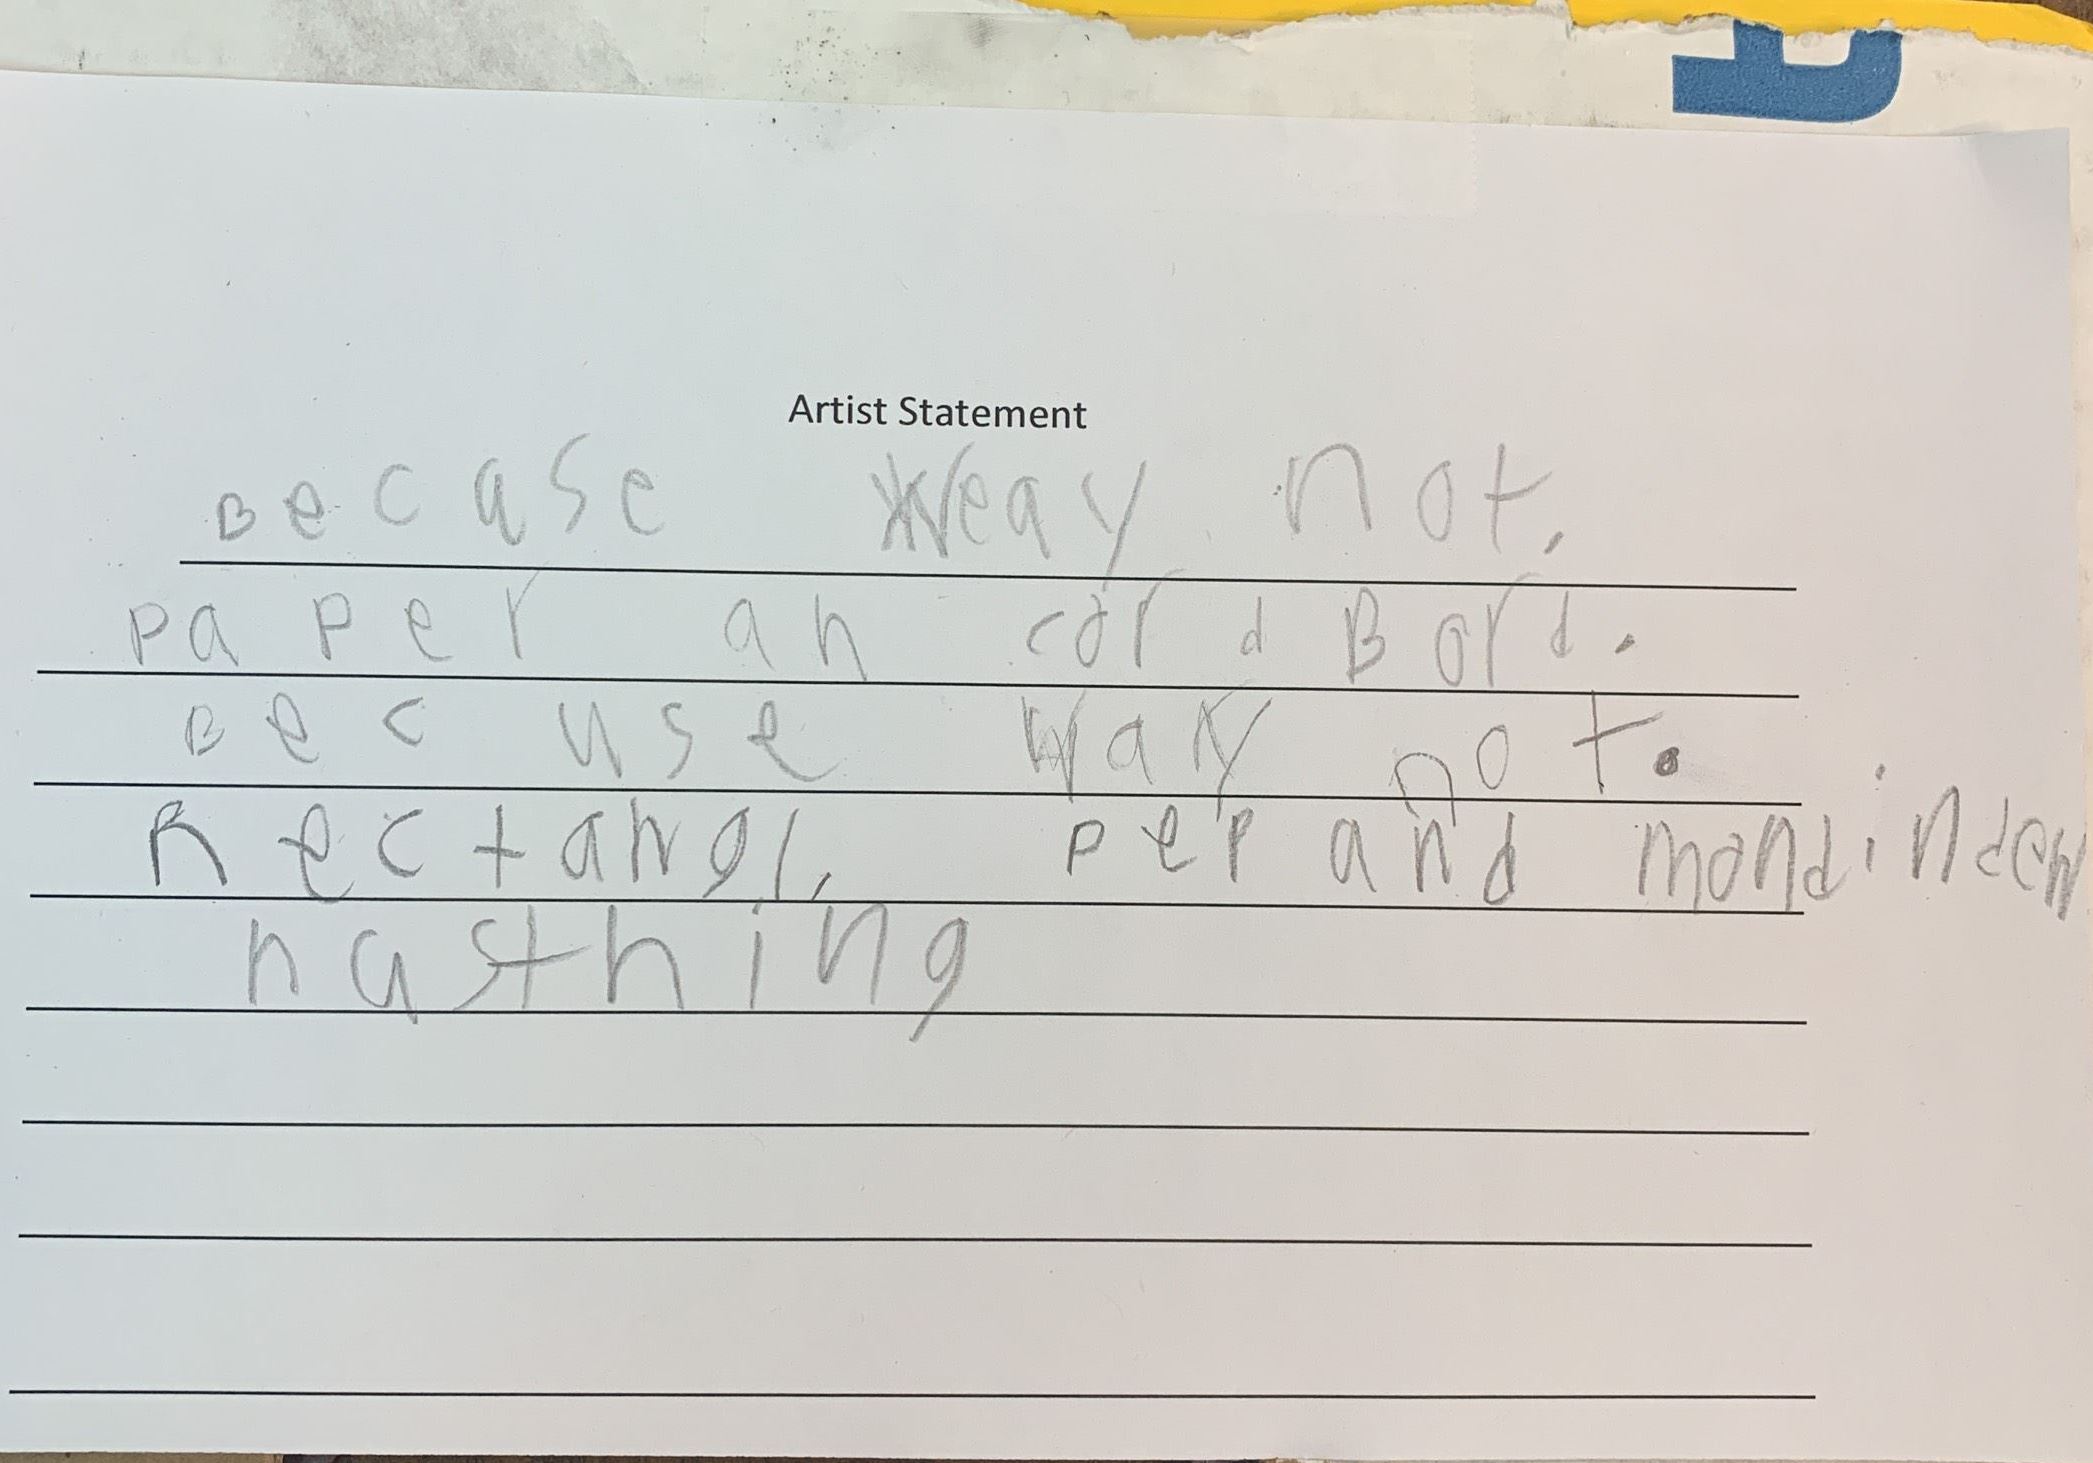 Artist Statement
Becase Weay not.
paper an cord Bord.
Becuse way not.
Rectangl, pep and
nasthing